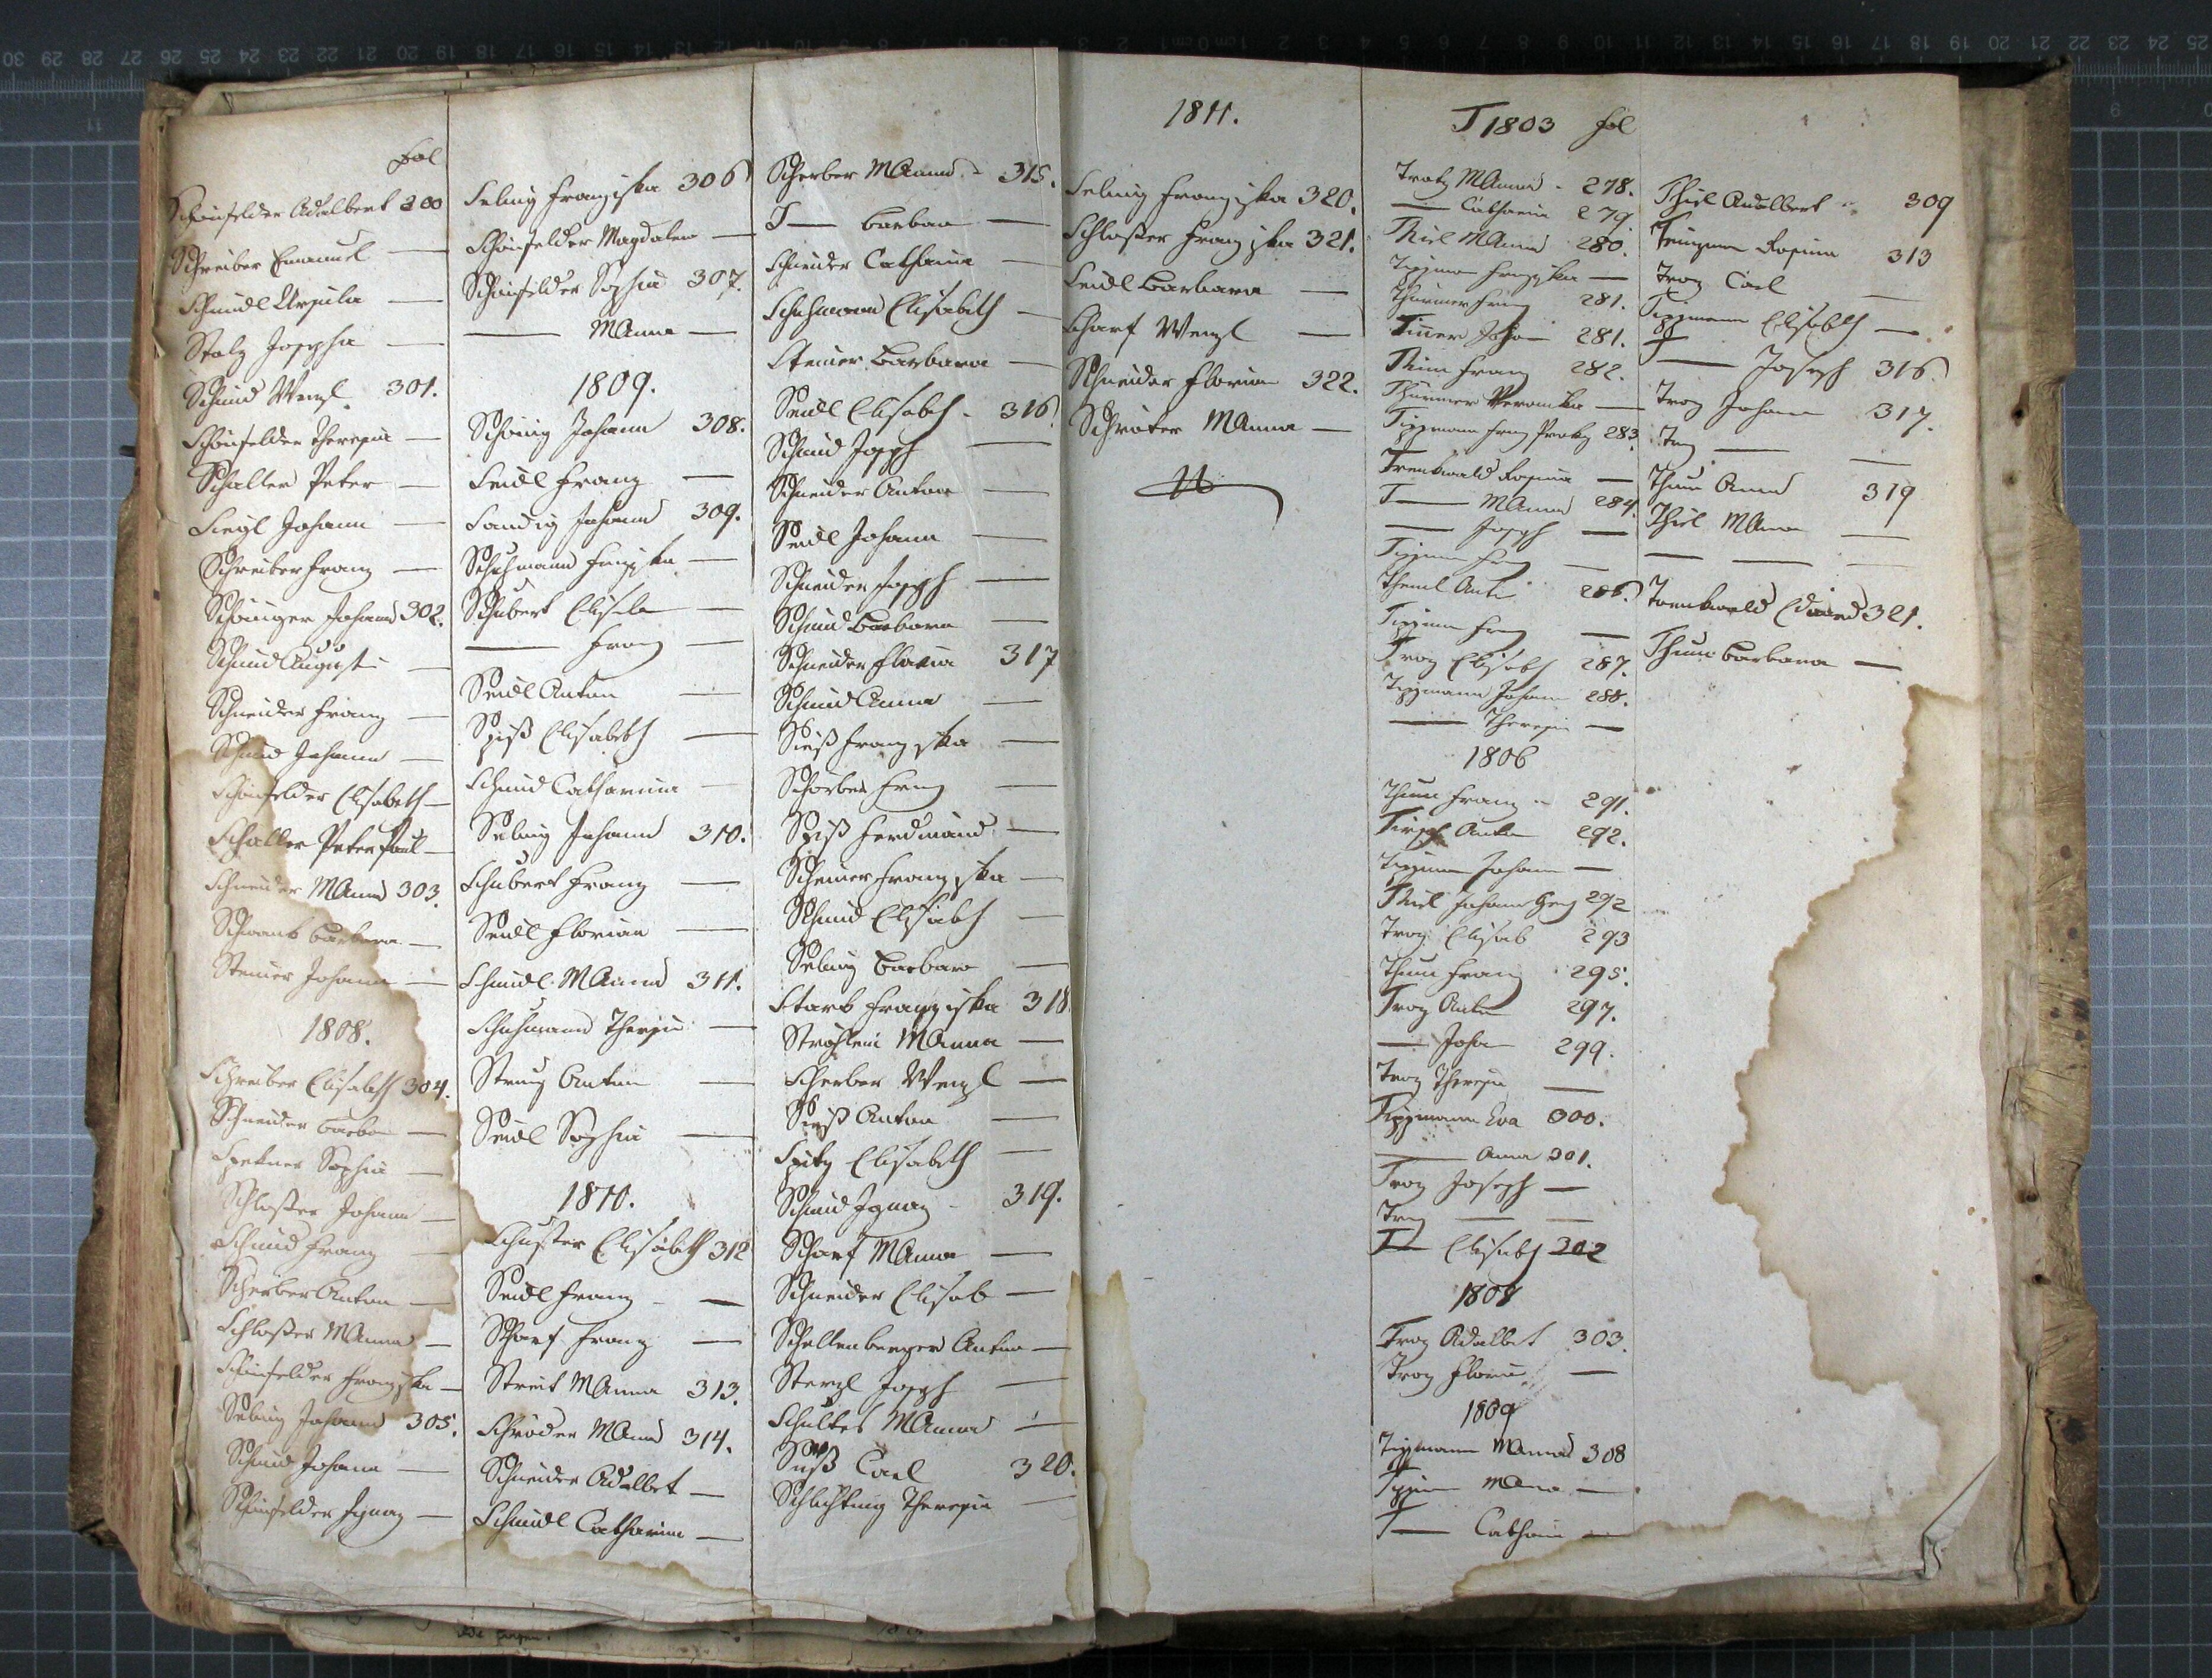 Fol
Schönfelder Adalbert 300
Schreiber Emanuel —
Schmidl Ursula —
Stolz Josepha —
Schmid Wenzl 301.
Schönfelder Theresia —
Schaller Peter —
Siegl Johann —
Schreiber Franz —
Johann 302.
Schmid August —
Schneider Franz —
Schmid Johann —
Schönfelder Elisabeth —
Schaller Peter Paul —
Schneider MAnna 303.
Schwank Barbara —
Steiner Johann —
1808.
Schreiber Elisabeth 304.
Schneider Barbara —
Sophia —
Schlosser Johann —
Schmid Franz —
Scherber Anton —
Schlosser MAnna —
Schönfelder Franziska —
Selbig Johann 305.
Schmid Johann —
Schönfelder Ignaz —
Selbig Franziska 306
Schönfelder Magdalen —
Schönfelder Sophia 307.
— MAnna —
1809.
Schönig Johann 308.
Seidl Franz —
Sandig Johann 309.
Schuhmann Franziska —
Schubert —
— Franz —
Seidl Anton —
Spiß Elisabeth —
Schmid Catharina —
Selbig Johann 310.
Schubert Franz —
Seidl Florian —
Schmidl MAnna 311.
Schuhmann Theresia —
Anton —
Seidl Sophia —
1810.
Schuster Elisabeth 312
Seidl Franz —
Scharf Franz —
Streit MAnna 313.
Schröder MAnna 314.
Schneider Adalbert —
Schmidl Catharina —
Scherber MAnna 315.
S — Barbara —
Schneider Catharina —
Schuhmann Elisabeth —
Steiner Barbara —
Seidl Elisabeth 316
Schmid Joseph —
Schneider Anton —
Seidl Johann —
Schneider Joseph —
Schmid Barbara —
Schneider Florian 317
Schmid Anna —
Süß Franziska —
Scherber Franz —
Spiß Ferdinand —
Steiner Franziska —
Schmid Elisabeth —
Selbig Barbara —
Stark Franziska 318.
Ströhlein MAnna —
Scherber Wenzl —
Süß Anton —
Spitz Elisabeth —
Schmid Ignaz 319.
Scharf MAnna —
Schneider Elisab —
Schellenberger Anton —
Sterzl Joseph —
Schultes MAnna —
Süß Carl 320.
Schlichting Theresia —
1811.
Selbig Franziska 320.
Schlosser Franziska 321.
Seidl Barbara —
Scharf Wenzl —
Schneider Florian 322.
Schröter MAnna —
T 1803 fol
MAnna 278.
— Catharina 279.
Thiel MAnna 280.
Tippmann Franziska —
Thürmer Franz 281.
Johann 281.
Thum Franz 282.
Thürmer Veronika —
Tippmann Franz 283
Trenkwald Rosina —
T — MAnna 284.
— Joseph —
Tippmann Franz —
Anton 286.
Tippmann Franz —
Troz Elisabeth 287.
Tippmann Johann 288.
— Theresia —
1806
Thum Franz 291.
Anton 292.
Tippmann Johann —
Thiel Johann Georg 292
Troz Elisab 293
Thum Franz 295.
Troz Anton 297.
— Johan 299.
Troz Theresia —
Tippmann Eva 300.
— Anna 301.
Troz Joseph —
Troz — —
T — Elisabeth 302
1808
Troz Adalbert 303.
Troz Florian —
1809
Tippmann MAnna 308
Tippmann MAnna —
T — Catharina —
Thiel Adalbert 309
Rosina 313
Troz Carl —
Tippmann Elisabeth —
— Joseph 316
Troz Johann 317.
Troz — —
Thum Anna 319
Thiel MAnna —
— — —
Trenkwald Eduard 321.
Thum Barbara —